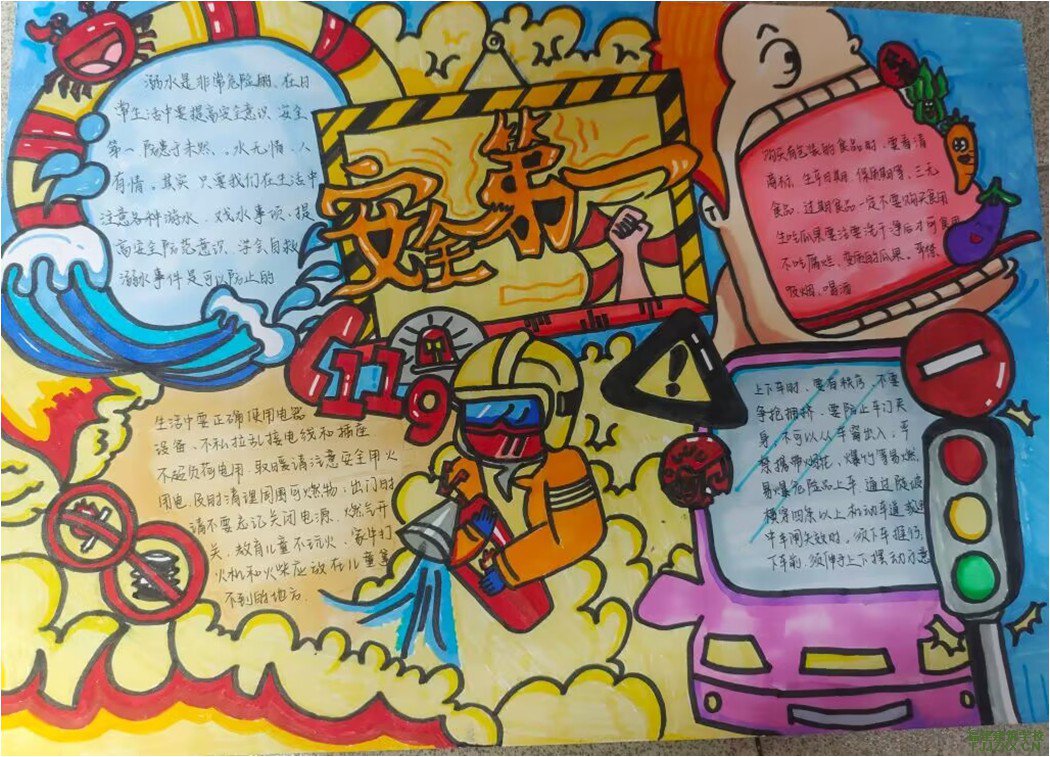 安全第一
119
溺水是非常危险的、在日
常生活中要提高安全意识、安全
第一、防患于未然、。水无情、人
有情。其实 只要我们在生活中
注意各种游水、戏水事项、提
高安全防范意识、学会自救
溺水事件是可以防止的
购买有包装的食品时、要看清
商标、生产日期、保质期等、三无
食品、过期食品一定不要购买食用
生吃瓜果要洁要洗干净后才可食用
不吃腐烂、变质的瓜果。严禁
吸烟、喝酒
生活中要正确使用电器
设备、不私拉乱接电线和插座
不超负荷电用、取暖请注意安全用火
用电、及时清理周围可燃物、出门时
请不要忘记关闭电源、燃气开
关、教育儿童不玩火、家中打
火机和火柴应放在儿童拿
不到的地方.
上下车时、要有秩序、不要
争抢拥挤、要防止车门夹
身、不可以从车窗出入、严
禁携带烟花、爆竹等易燃
易爆危险品上车、通过陡坡
横穿四条以上机动车道或
车闸失效时。须下车推行、
下车前、须伸手上下摆动示意